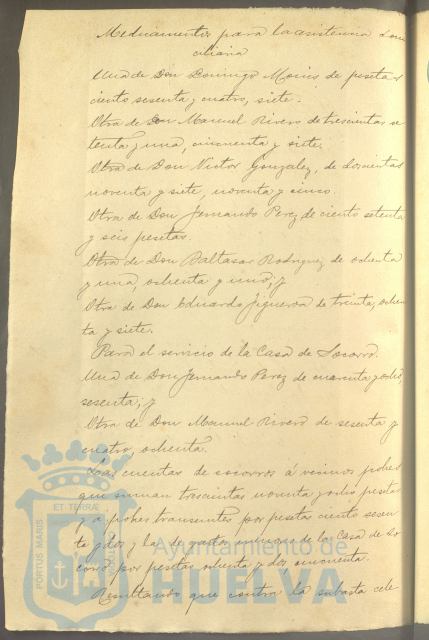 Medicamentos para la asistencia domi
ciliaria
Una de Don Domingo de pesetas
ciento sesenta y cuatro, siete.
Otra de Don Manuel Rivero de trescientas se
tenta y una, cincuenta y siete.
Otra de Don Victor Gonzalez, de doscientas
noventa y siete, noventa y cinco.
Otra de Don Fernando Perez de ciento setenta
y seis pesetas.
Otra de Don Baltasar Rodriguez de ochenta
y una, ochenta y uno; y
Otra de Don Eduardo Figueroa de treinta, ochen
ta y siete.
Para el servicio de la Casa de Socorro.
Una de Don Fernando Perez de cuarenta y dos,
sesenta; y
Otra de Don Manuel Rivero de sesenta y
cuatro, ochenta.
Las cuentas de socorros á vecinos pobres
que suman trescientas noventa y pesetas
y a pobres transeuntes por pesetas ciento sesen
ta y dos y la de gastos menores de la Casa de So
corro por pesetas ochenta y dos cincuenta.
Resultando que contra la subasta cele
PORTUS MARIS
ET TERRÆ
Ayuntamiento de
HUELVA